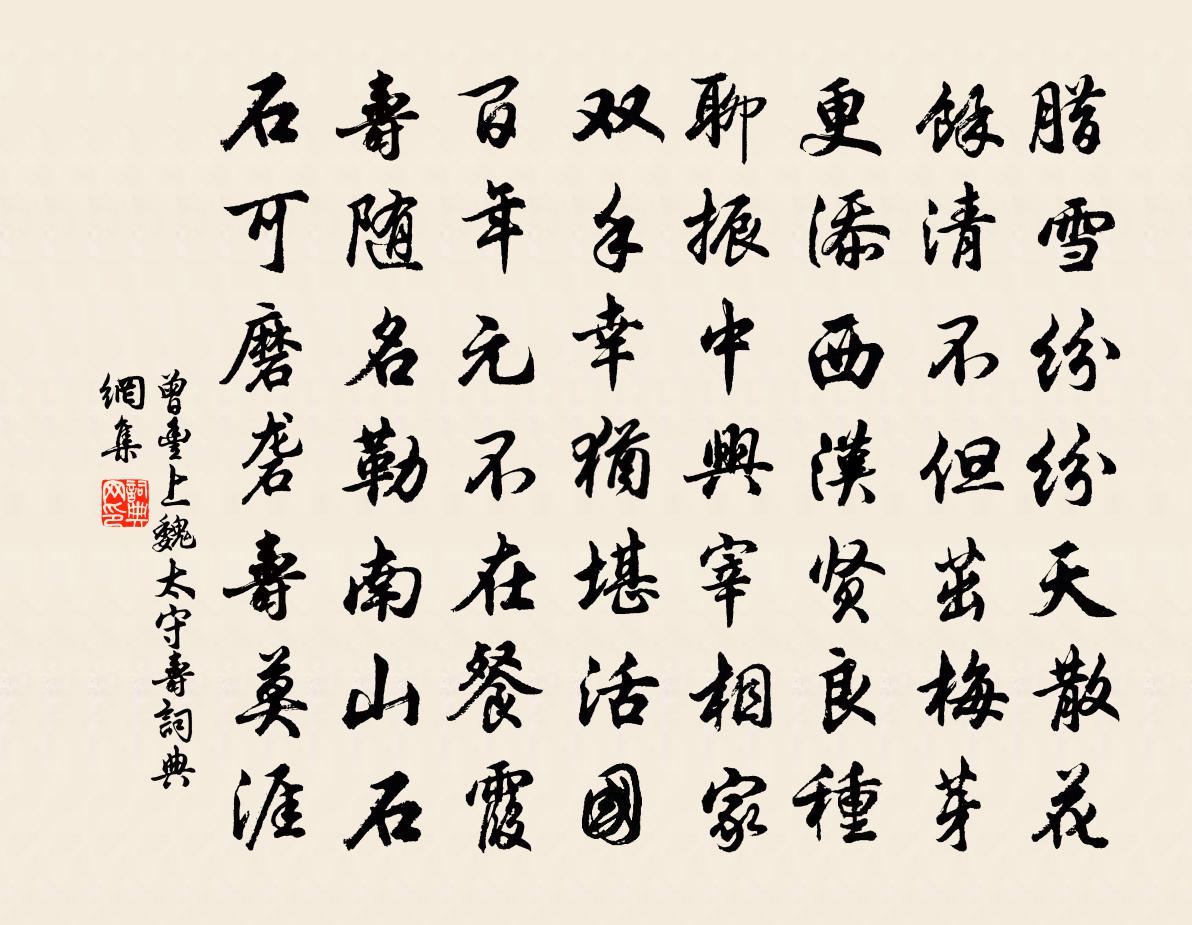 腊雪纷纷天散花
餘清不但茁梅芽
更添西漢贤良種
聊振中興宰相家
双手幸猶堪活國
百年元不在餐霞
壽随名勒南山石
石可磨砻壽莫涯
曾豊上魏太守壽詞典
網集
詞典
网印